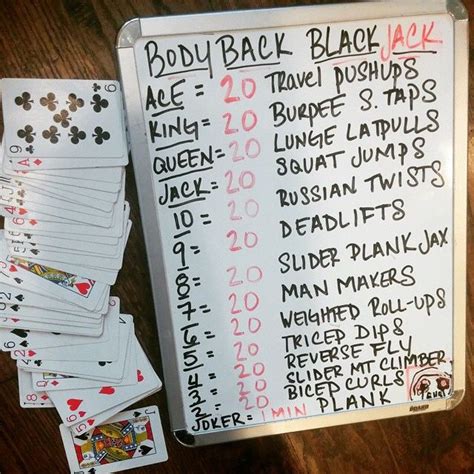 BODY BACK BLACKJACK
ACE = 20 TRAVEL PUSHUPS
KING = 20 BURPEE S. TAPS
QUEEN = 20 LUNGE LATPULLS
JACK = 20 SQUAT JUMPS
10 = 20 RUSSIAN TWISTS
9 = 20 DEADLIFTS
8 = 20 SLIDER PLANK JAX
7 = 20 MAN MAKERS
6 = 20 WEIGHTED ROLL-UPS
5 = 20 TRICEP DIPS
4 = 20 REVERSE FLY
3 = 20 SLIDER MT CLIMBER
2 = 20 BICEP CURLS
JOKER = 1 MIN PLANK